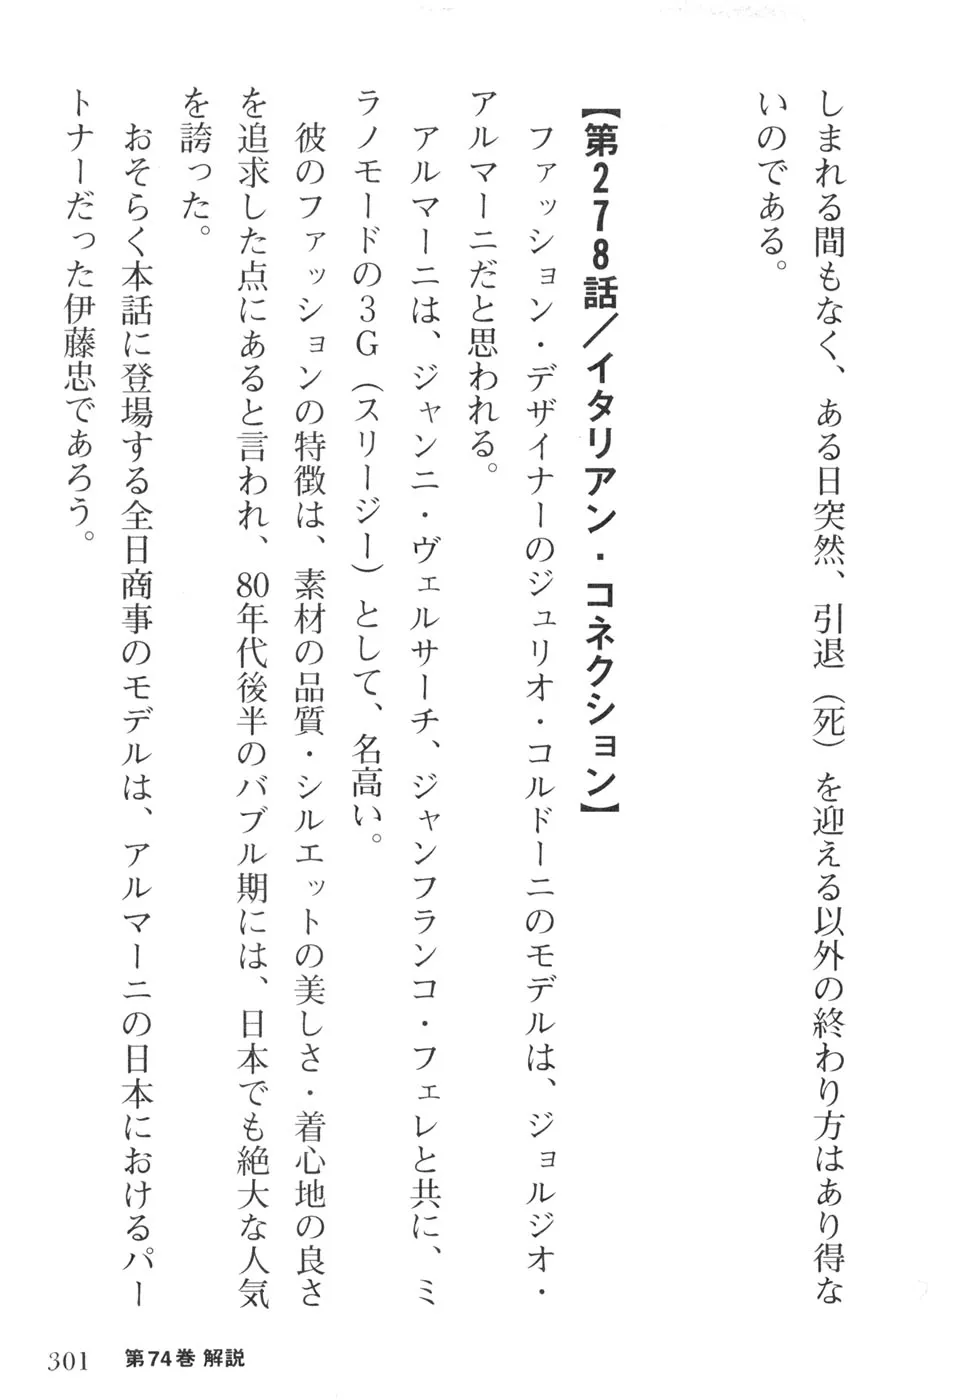 しまれる間もなく、ある日突然、引退（死）を迎える以外の終わり方はあり得な
いのである。
【第278話／イタリアン・コネクション】
ファッション・デザイナーのジュリオ・コルドーニのモデルは、ジョルジオ・
アルマーニだと思われる。
アルマーニは、ジャンニ・ヴェルサーチ、ジャンフランコ・フェレと共に、ミ
ラノモードの3G（スリージー）として、名高い。
彼のファッションの特徴は、素材の品質・シルエットの美しさ・着心地の良さ
を追求した点にあると言われ、80年代後半のバブル期には、日本でも絶大な人気
を誇った。
おそらく本話に登場する全日商事のモデルは、アルマーニの日本におけるパー
トナーだった伊藤忠であろう。
301 第74巻 解説